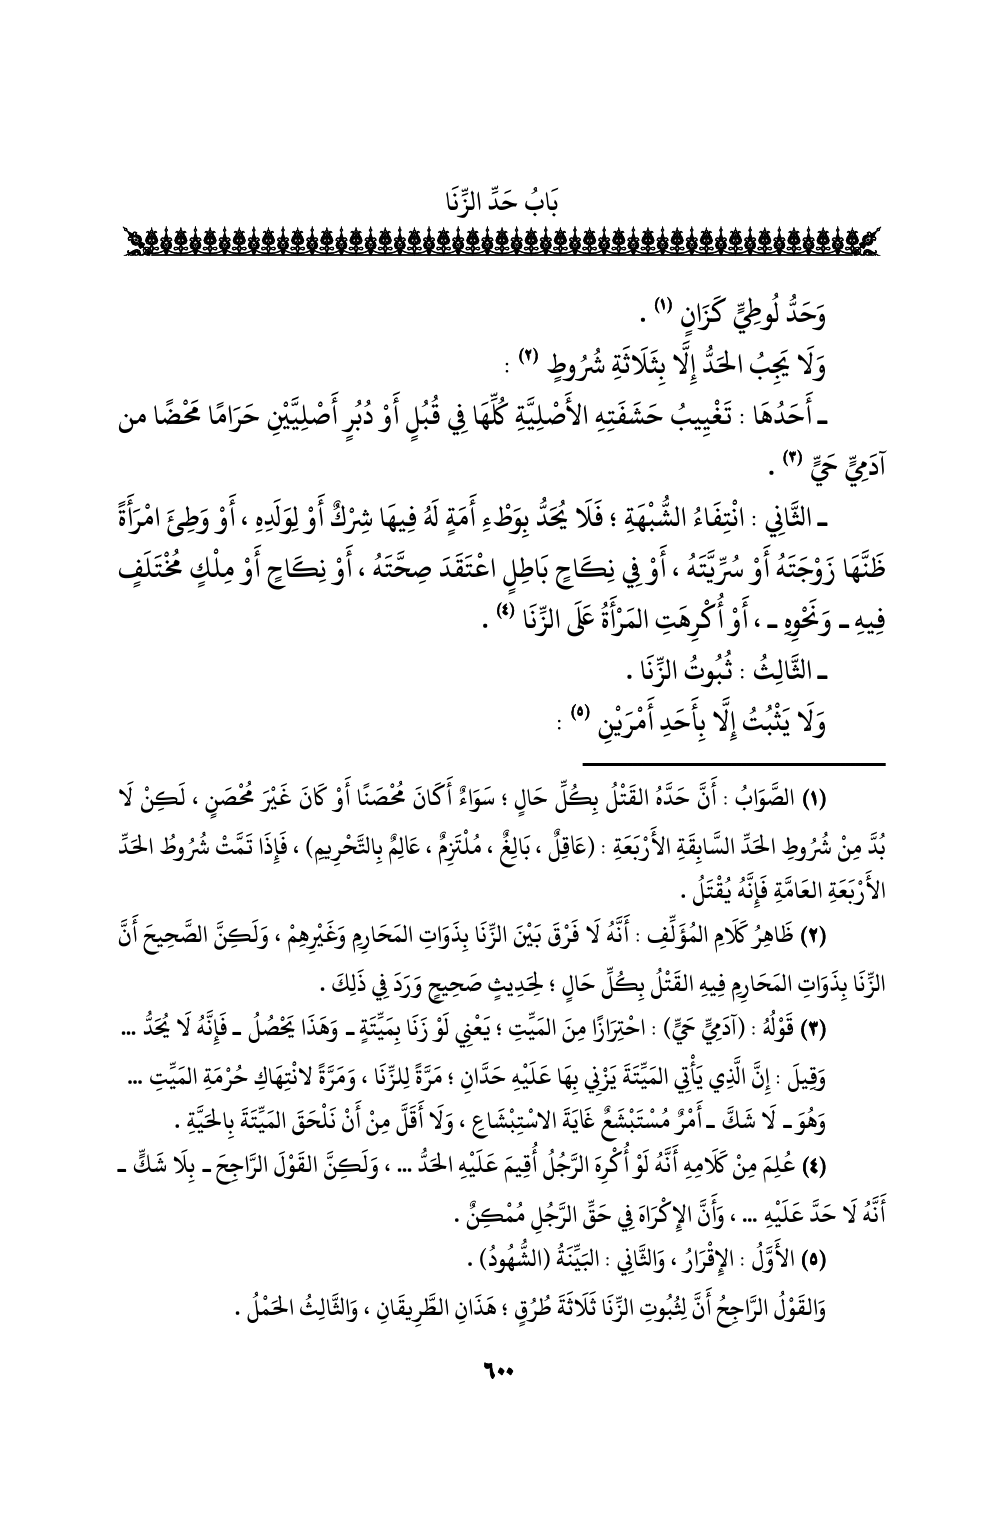 بَابُ حَدِّ الزِّنَا
وَحَدُّ لُوطِيٍّ كَزَانٍ (١) .
وَلَا يَجِبُ الحَدُّ إِلَّا بِثَلَاثَةِ شُرُوطٍ (٢) :
ـ أَحَدُهَا : تَغْيِيبُ حَشَفَتِهِ الأَصْلِيَّةِ كُلِّهَا فِي قُبُلٍ أَوْ دُبُرٍ أَصْلِيَّيْنِ حَرَامًا مَحْضًا من
آدَمِيٍّ حَيٍّ (٣) .
ـ الثَّانِي : انْتِفَاءُ الشُّبْهَةِ ؛ فَلَا يُحَدُّ بِوَطْءِ أَمَةٍ لَهُ فِيهَا شِرْكٌ أَوْ لِوَلَدِهِ ، أَوْ وَطِئَ امْرَأَةً
ظَنَّهَا زَوْجَتَهُ أَوْ سُرِّيَّتَهُ ، أَوْ فِي نِكَاحٍ بَاطِلٍ اعْتَقَدَ صِحَّتَهُ ، أَوْ نِكَاحٍ أَوْ مِلْكٍ مُخْتَلَفٍ
فِيهِ ـ وَنَحْوِهِ ـ ، أَوْ أُكْرِهَتِ المَرْأَةُ عَلَى الزِّنَا (٤) .
ـ الثَّالِثُ : ثُبُوتُ الزِّنَا .
وَلَا يَثْبُتُ إِلَّا بِأَحَدِ أَمْرَيْنِ (٥) :
(١) الصَّوَابُ : أَنَّ حَدَّهُ القَتْلُ بِكُلِّ حَالٍ ؛ سَوَاءٌ أَكَانَ مُحْصَنًا أَوْ كَانَ غَيْرَ مُحْصَنٍ ، لَكِنْ لَا
بُدَّ مِنْ شُرُوطِ الحَدِّ السَّابِقَةِ الأَرْبَعَةِ : (عَاقِلٌ ، بَالِغٌ ، مُلْتَزِمٌ ، عَالِمٌ بِالتَّحْرِيمِ) ، فَإِذَا تَمَّتْ شُرُوطُ الحَدِّ
الأَرْبَعَةِ العَامَّةِ فَإِنَّهُ يُقْتَلُ .
(٢) ظَاهِرُ كَلَامِ المُؤَلِّفِ : أَنَّهُ لَا فَرْقَ بَيْنَ الزِّنَا بِذَوَاتِ المَحَارِمِ وَغَيْرِهِمْ ، وَلَكِنَّ الصَّحِيحَ أَنَّ
الزِّنَا بِذَوَاتِ المَحَارِمِ فِيهِ القَتْلُ بِكُلِّ حَالٍ ؛ لِحَدِيثٍ صَحِيحٍ وَرَدَ فِي ذَلِكَ .
(٣) قَوْلُهُ : (آدَمِيٍّ حَيٍّ) : احْتِرَازًا مِنَ المَيِّتِ ؛ يَعْنِي لَوْ زَنَا بِمَيِّتَةٍ ـ وَهَذَا يَحْصُلُ ـ فَإِنَّهُ لَا يُحَدُّ ...
وَقِيلَ : إِنَّ الَّذِي يَأْتِي المَيِّتَةَ يَزْنِي بِهَا عَلَيْهِ حَدَّانِ ؛ مَرَّةً لِلزِّنَا ، وَمَرَّةً لانْتِهَاكِ حُرْمَةِ المَيِّتِ ...
وَهُوَ ـ لَا شَكَّ ـ أَمْرٌ مُسْتَبْشَعٌ غَايَةَ الاسْتِبْشَاعِ ، وَلَا أَقَلَّ مِنْ أَنْ نَلْحَقَ المَيِّتَةَ بِالحَيَّةِ .
(٤) عُلِمَ مِنْ كَلَامِهِ أَنَّهُ لَوْ أُكْرِهَ الرَّجُلُ أُقِيمَ عَلَيْهِ الحَدُّ ... ، وَلَكِنَّ القَوْلَ الرَّاجِحَ ـ بِلَا شَكٍّ ـ
أَنَّهُ لَا حَدَّ عَلَيْهِ ... ، وَأَنَّ الإِكْرَاهَ فِي حَقِّ الرَّجُلِ مُمْكِنٌ .
(٥) الأَوَّلُ : الإِقْرَارُ ، وَالثَّانِي : البَيِّنَةُ (الشُّهُودُ) .
وَالقَوْلُ الرَّاجِحُ أَنَّ لِثُبُوتِ الزِّنَا ثَلَاثَةَ طُرُقٍ ؛ هَذَانِ الطَّرِيقَانِ ، وَالثَّالِثُ الحَمْلُ .
٦٠٠